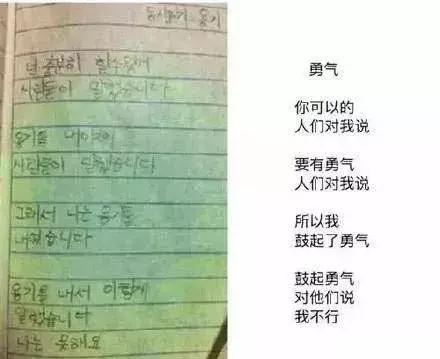 동시쓰기 용기
넌 충분히 할수있어
사람들이 말했습니다
용기를 내야해
사람들이 말했습니다
그래서 나는 용기를
내었습니다
용기를 내서 이렇게
말했습니다
나는 못해요
勇气
你可以的
人们对我说
要有勇气
人们对我说
所以我
鼓起了勇气
鼓起勇气
对他们说
我不行